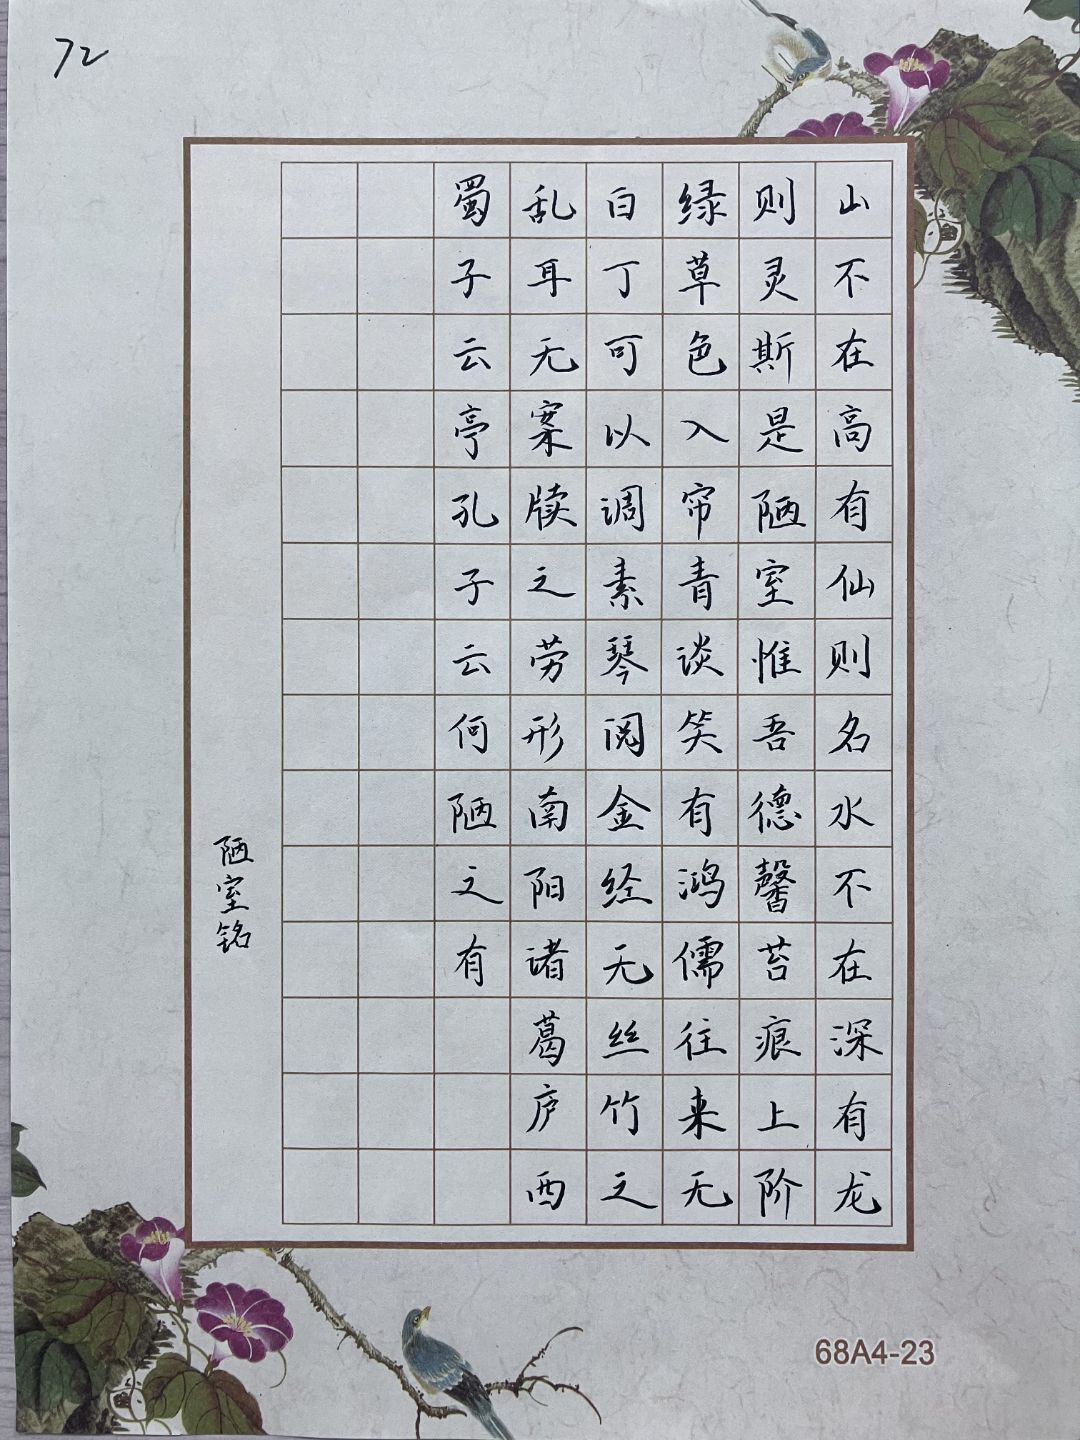 72
山不在高有仙则名水不在深有龙
则灵斯是陋室惟吾德馨苔痕上阶
绿草色入帘青谈笑有鸿儒往来无
白丁可以调素琴阅金经无丝竹之
乱耳无案牍之劳形南阳诸葛庐西
蜀子云亭孔子云何陋之有
陋室铭
68A4-23